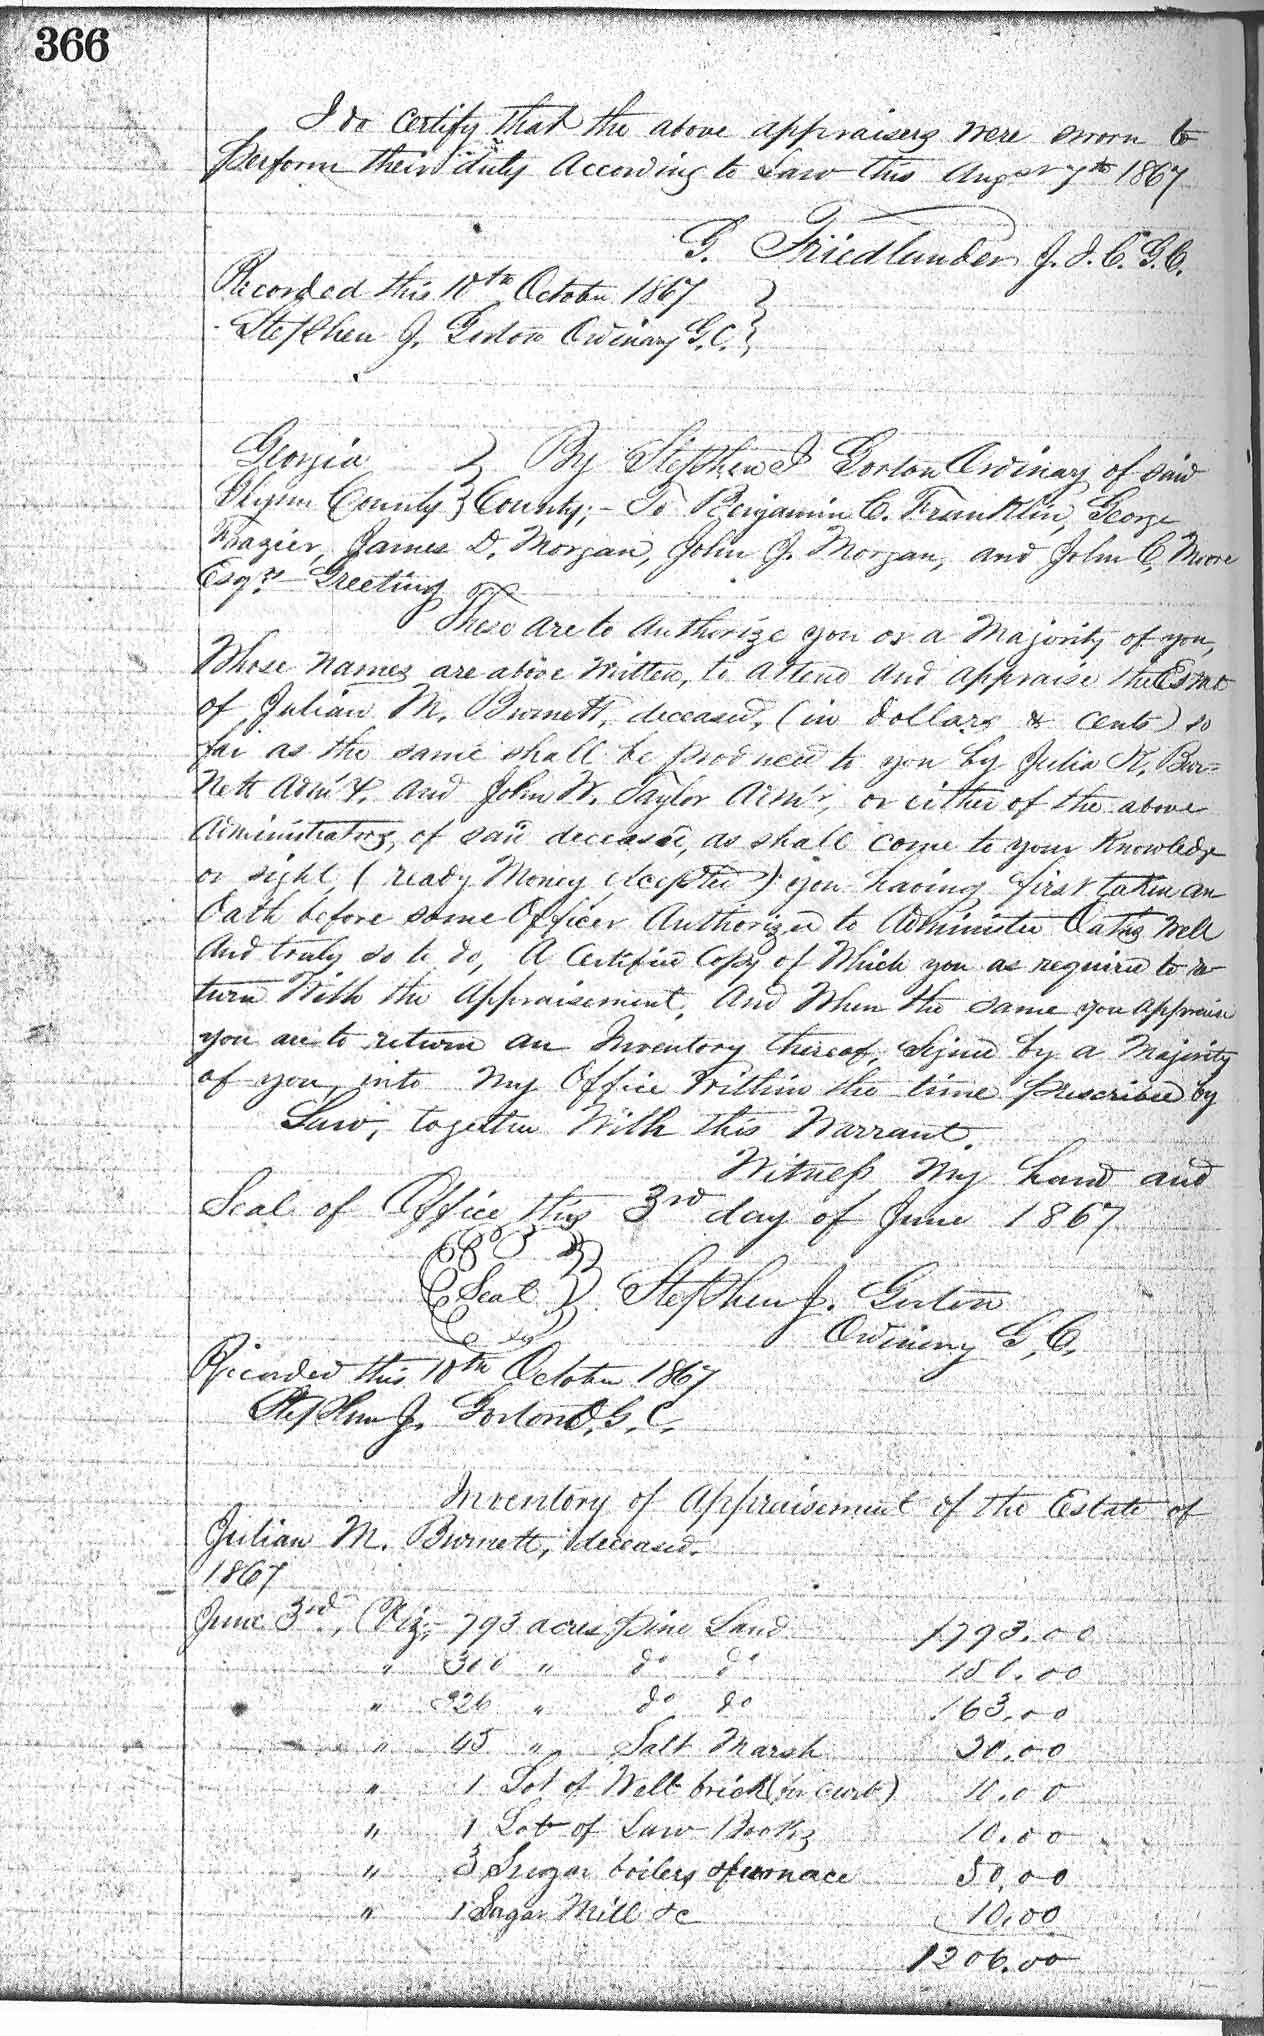 366
I do Certify that the above appraisers were sworn to
perform their duty According to Law this Augst 7th 1867
G. Friedlander J.I.C.G.C.
Recorded this 10th October 1867
Stephen J. Gorton Ordinary G.C.
Georgia } By Stephen J Gorton Ordinary of said
Glynn County } County;- To Benjamin C. Franklin, George
Frazier, James D. Morgan, John J. Morgan, and John C. Moore
Esqrs- Greeting
These are to Authorize you or a Majority of you,
Whose names are above Written, to attend and appraise the Estate
of Julian M. Burnett, deceased, (in dollars & cents) so
far as the same shall be produced to you by Julia K. Bur=
nett Adm'x. and John W. Taylor Adm'r, or either of the above
Administrators, of said deceased, as shall come to your Knowledge
or sight, (ready Money excepted) you having first taken an
Oath before some Officer Authorized to Administer Oaths Well
And truly so to do, A Certified Copy of Which you as required to re
turn With the Appraisement, And When the same you appraise
you are to return an Inventory thereof, signed by a Majority
of you, into My Office Within the time prescribed by
Law, together With this Warrant.
Witness My hand and
Seal of Office this 3rd day of June 1867
Seal Stephen J. Gorton
Ordinary G.C.
Recorded this 10th October 1867
Stephen J. Gorton O.G.C.
Inventory of Appraisement of the Estate of
Julian M. Burnett, deceased.
1867
June 3rd, (Viz,- 793 acres pine Land $793.00
" 300 " do do 150.00
" 326 " do do 163.00
" 45 " Salt Marsh 20.00
" 1 Lot of Well brick (for curb) 10.00
" 1 Lot of Law Books 10.00
" 3 Sugar boilers & furnace 50.00
" 1 Sugar Mill &c 10.00
1206.00